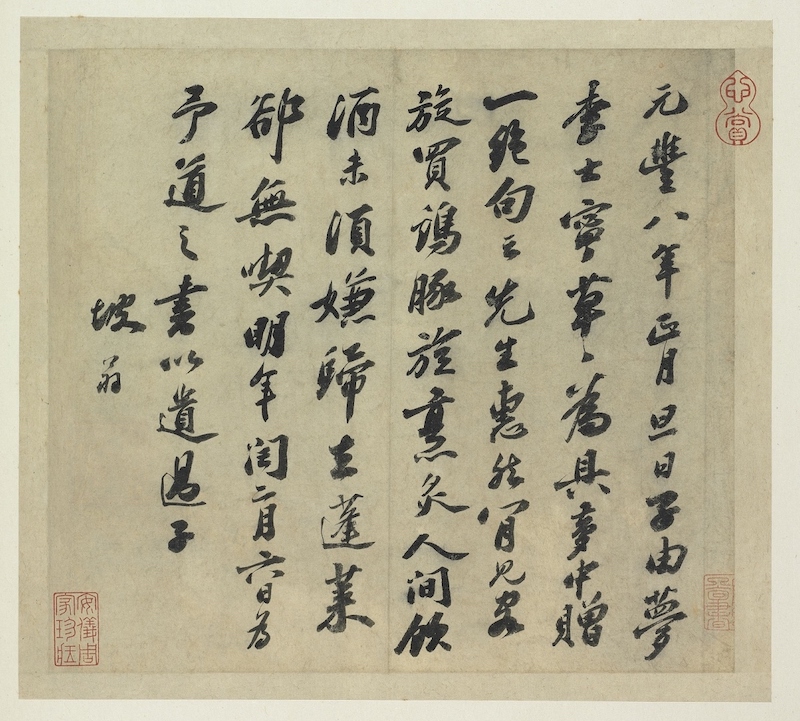 元豐八年正月旦日子由夢
李士寧草〻為具夢中贈
一絕句云先生惠然肯見客
旋買鷄豚旋烹炙人間飲
酒未須嫌歸去蓬萊
卻無喫明年閏二月六日為
予道之書以遺過子
坡翁
安儀周家珍藏